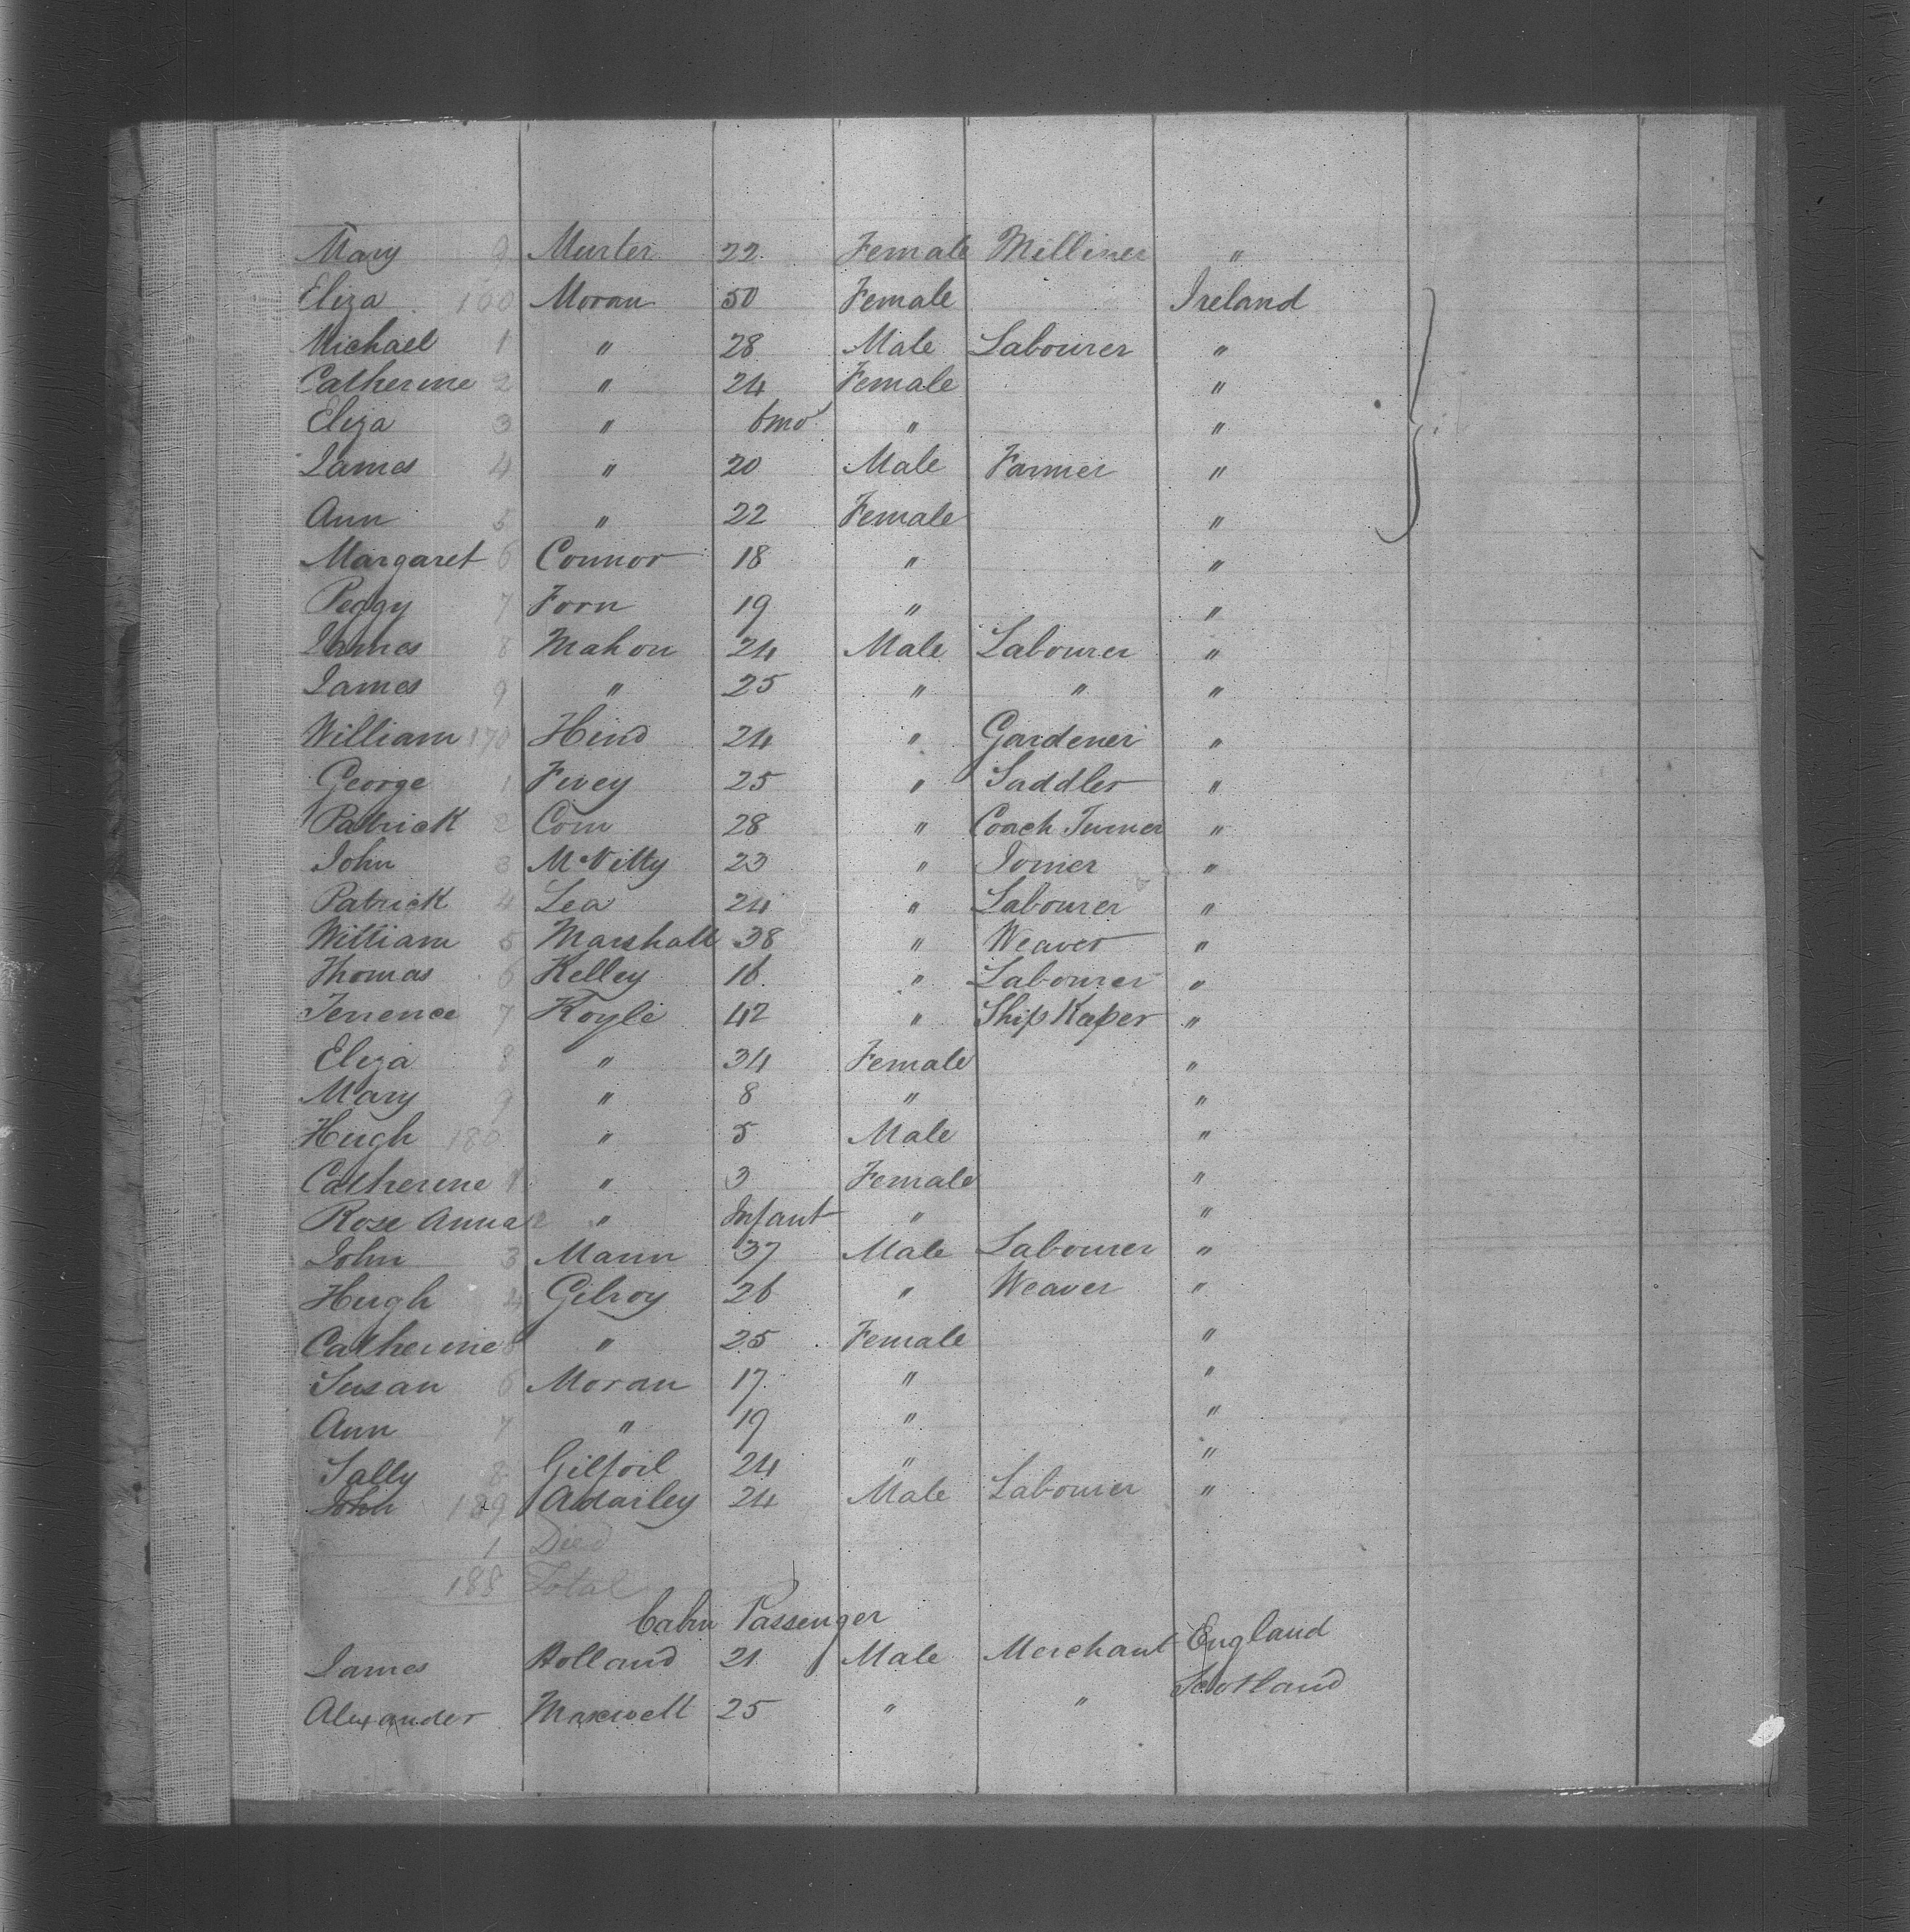 Mary 9 Murter 22 Female Milliner "
Eliza 160 Moran 50 Female Ireland
Michael 1 " 28 Male Labourer "
Catherine 2 " 24 Female "
Eliza 3 " 6mo " "
James 4 " 20 Male Farmer "
Ann 5 " 22 Female "
Margaret 6 Connor 18 " "
Peggy 7 Forn 19 " "
James 8 Mahon 24 Male Labourer "
James 9 " 25 " " "
William 170 Hind 24 " Gardener "
George 1 Fivey 25 " Saddler "
Patrick 2 Corn 28 " Coach Turner "
John 3 McVitty 23 " Joiner "
Patrick 4 Lea 24 " Labourer "
William 5 Marshall 38 " Weaver "
Thomas 6 Kelley 16 " Labourer "
Terrence 7 Koyle 42 " Ship Keeper "
Eliza 8 " 34 Female "
Mary 9 " 8 " "
Hugh 180 " 5 Male "
Catherine 1 " 3 Female "
Rose Anna 2 " Infant " "
John 3 Mann 37 Male Labourer "
Hugh 4 Gilroy 26 " Weaver "
Catherine 5 " 25 Female "
Susan 6 Moran 17 " "
Ann 7 " 19 " "
Sally 8 Gilfoil 24 " "
John 189 Adarley 24 Male Labourer "
1 Died
188 Total
Cabin Passenger
James Holland 21 Male Merchant England
Alexander Maxwell 25 " " Scotland